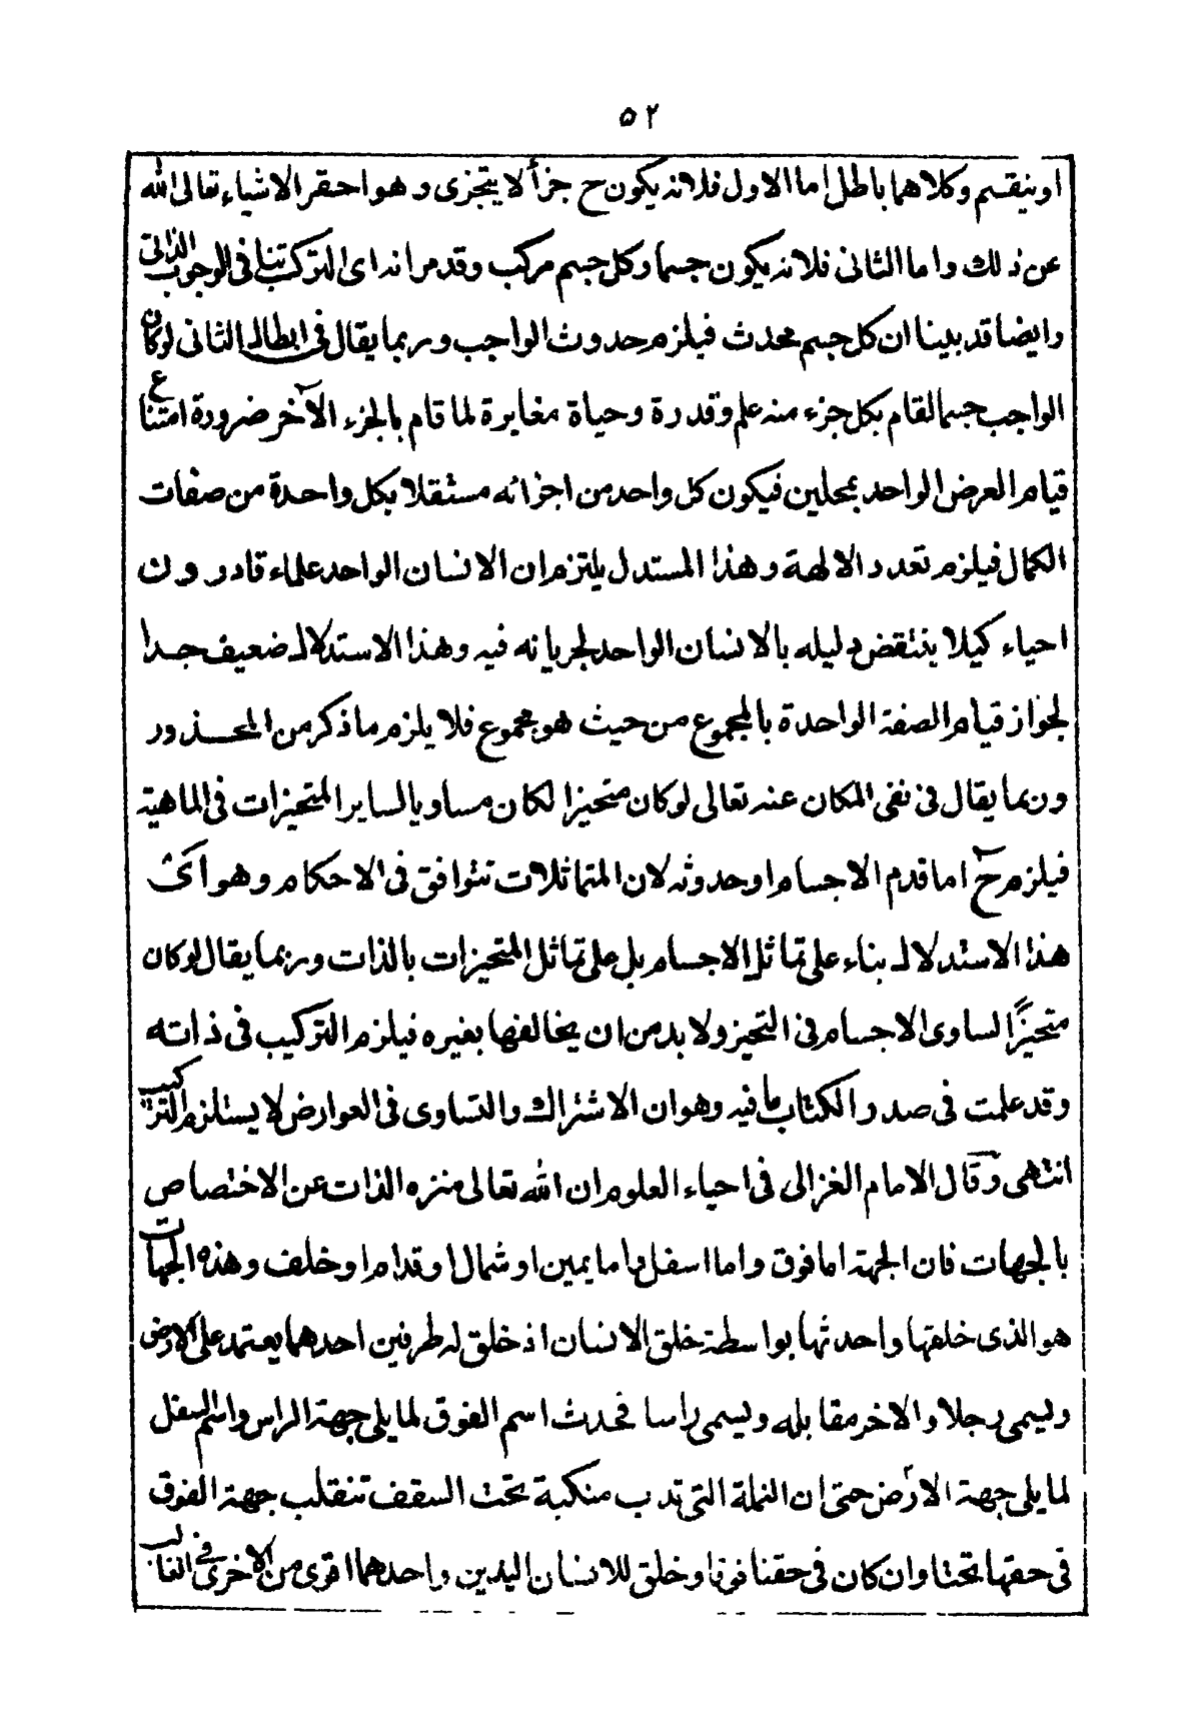 ٥٢
او ينقسم وكلاهما باطل اما الاول فلانه يكون ح جزأ لا يتجزى وهو احقر الاشياء تعالى الله
عن ذلك واما الثانى فلانه يكون جسما وكل جسم مركب وقد مر انه اى التركب تنافى الوجوب الذاتى
وايضا قد بينا ان كل جسم محدث فيلزم حدوث الواجب وربما يقال فى ابطال الثانى لو كان
الواجب جسما لقام بكل جزء منه علم وقدرة وحياة مغايرة لما قام بالجزء الآخر ضرورة امتناع
قيام العرض الواحد بمحلين فيكون كل واحد من اجزائه مستقلا بكل واحدة من صفات
الكمال فيلزم تعدد الالهة وهذا المستدل يلتزم ان الانسان الواحد علماء قادرون
احياء كيلا ينتقض دليله بالانسان الواحد لجريانه فيه وهذا الاستدلال ضعيف جدا
لجواز قيام الصفة الواحدة بالمجموع من حيث هو مجموع فلا يلزم ما ذكر من المحذور
وربما يقال فى نفى المكان عنه تعالى لو كان متحيزا لكان مساويا لساير المتحيزات فى الماهية
فيلزم ح اما قدم الاجسام او حدوثه لان المتماثلات تتوافق فى الاحكام وهو اى
هذا الاستدلال بناء على تماثل الاجسام بل على تماثل المتحيزات بالذات وربما يقال لو كان
متحيزًا لساوى الاجسام فى التحيز ولا بد من ان يخالفها بغيره فيلزم التركيب فى ذاته
وقد علمت فى صدر الكتاب ما فيه وهو ان الاشتراك والتساوى فى العوارض لا يستلزم التركيب
انتهى وقال الامام الغزالى فى احياء العلوم ان الله تعالى منزه الذات عن الاختصاص
بالجهات فان الجهة اما فوق واما اسفل واما يمين او شمال او قدام او خلف وهذه الجهات
هو الذى خلقها واحدثها بواسطة خلق الانسان اذ خلق له طرفين احدهما يعتمد على الارض
ويسمى رجلا والاخر مقابله ويسمى راسا فحدث اسم الفوق لما يلى جهة الراس واسم السفل
لما يلى جهة الارض حتى ان النملة التى تدب منكبة تحت السقف تنقلب جهة الفوق
فى حقها تحتا وان كان فى حقنا فوقا وخلق للانسان اليدين واحدهما اقوى من الاخرى فى الغالب